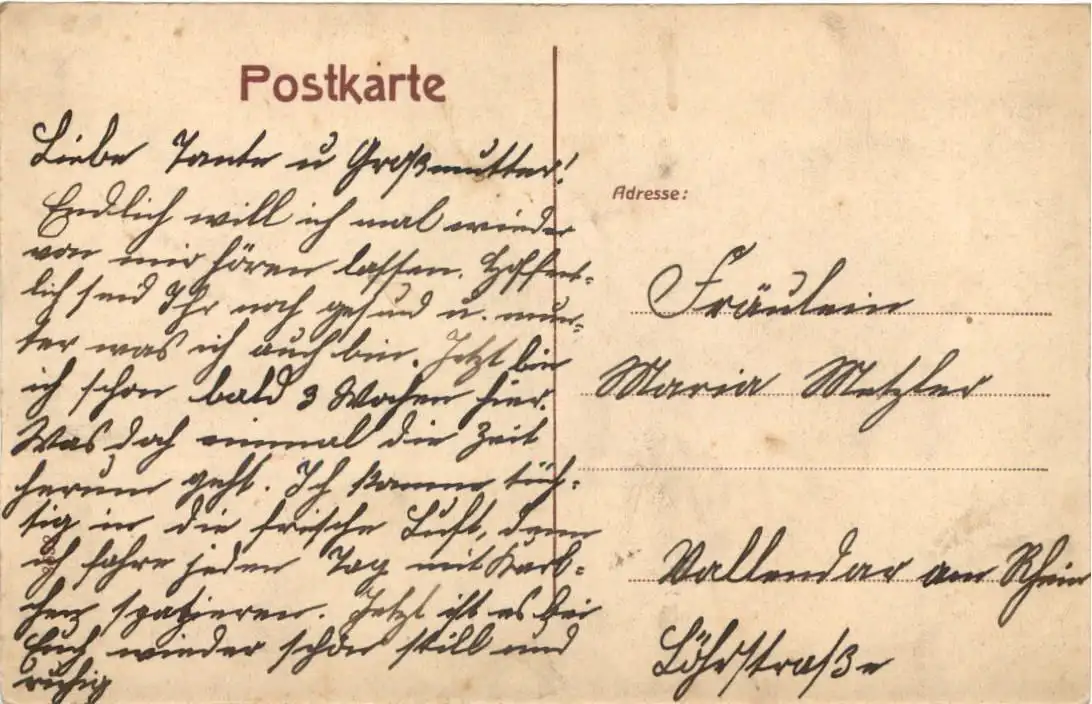 Postkarte
Liebe Tante u Großmutter!
Endlich will ich mal wieder
von mir hören lassen. Hoffent-
lich seid Ihr noch gesund u. mun-
ter was ich auch bin. Jetzt bin
ich schon bald 3 Wochen hier.
Was doch einmal die Zeit
herum geht. Ich komme tüch-
tig in die frische Luft, denn
ich fahre jeden Tag mit Karl-
chen spazieren. Jetzt ist es bei
Euch wieder schön still und
ruhig
Adresse:
Fräulein
Maria Metzler
Vallendar am Rhein
Löhrstraße